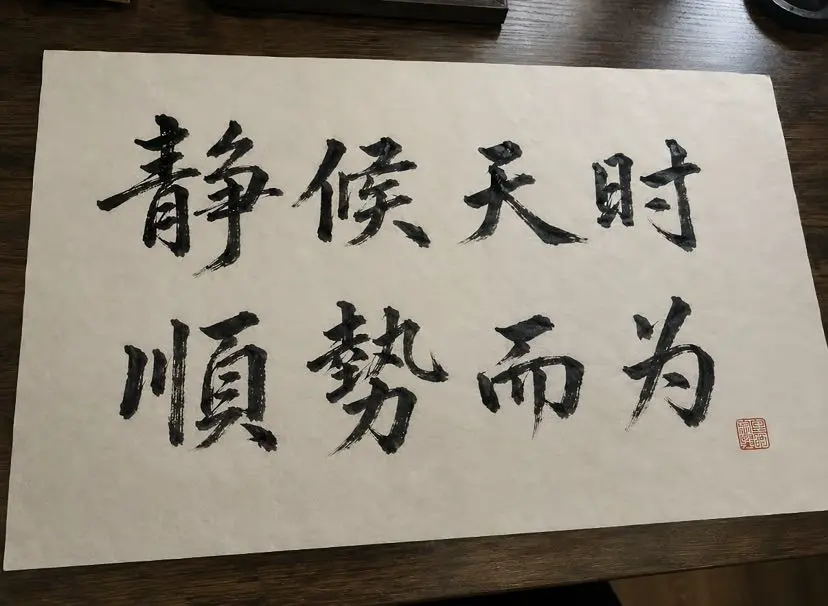 静候天时
順勢而为